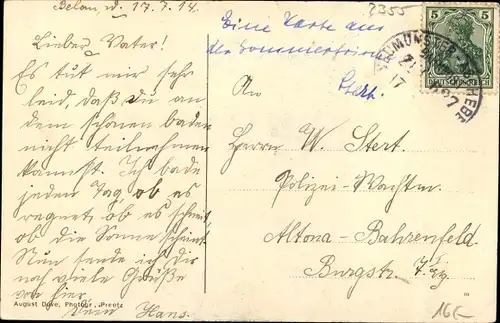 Belau, d. 17.7.14.
Lieber Vater!
Es tut mir sehr
leid, daß du an
dem schönen baden
nicht teilnehmen
kannst. Ich bade
jeden Tag, ob es
regnet, ob es schneit
ob die Sonne scheint.
Nun sende ich dir
noch viele Grüße
von hier.
Dein Hans.
August Döve, Photogr., Preetz
2355
Eine Karte aus
der Sommerfrische
Stert.
An
Herrn W. Stert
Polizei-Wachtm.
Altona-Bahrenfeld
Burgstr.
5 5
DEUTSCHES REICH
NEUMÜNSTER
16.-